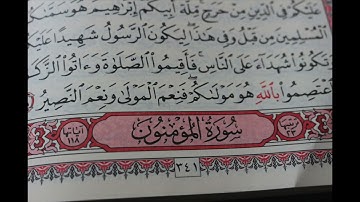 عَلَيْكُمْ فِي ٱلدِّينِ مِنْ حَرَجٍ مِّلَّةَ أَبِيكُمْ إِبْرَٰهِيمَ هُوَ سَمَّىٰكُمُ
ٱلْمُسْلِمِينَ مِن قَبْلُ وَفِي هَٰذَا لِيَكُونَ ٱلرَّسُولُ شَهِيدًا عَلَيْكُمْ
وَتَكُونُوا۟ شُهَدَآءَ عَلَى ٱلنَّاسِ فَأَقِيمُوا۟ ٱلصَّلَوٰةَ وَءَاتُوا۟ ٱلزَّكَوٰةَ
وَٱعْتَصِمُوا۟ بِٱللَّهِ هُوَ مَوْلَىٰكُمْ فَنِعْمَ ٱلْمَوْلَىٰ وَنِعْمَ ٱلنَّصِيرُ
سُورَةُ المُؤْمِنُونَ
آيَاتُهَا ١١٨
٣٤١